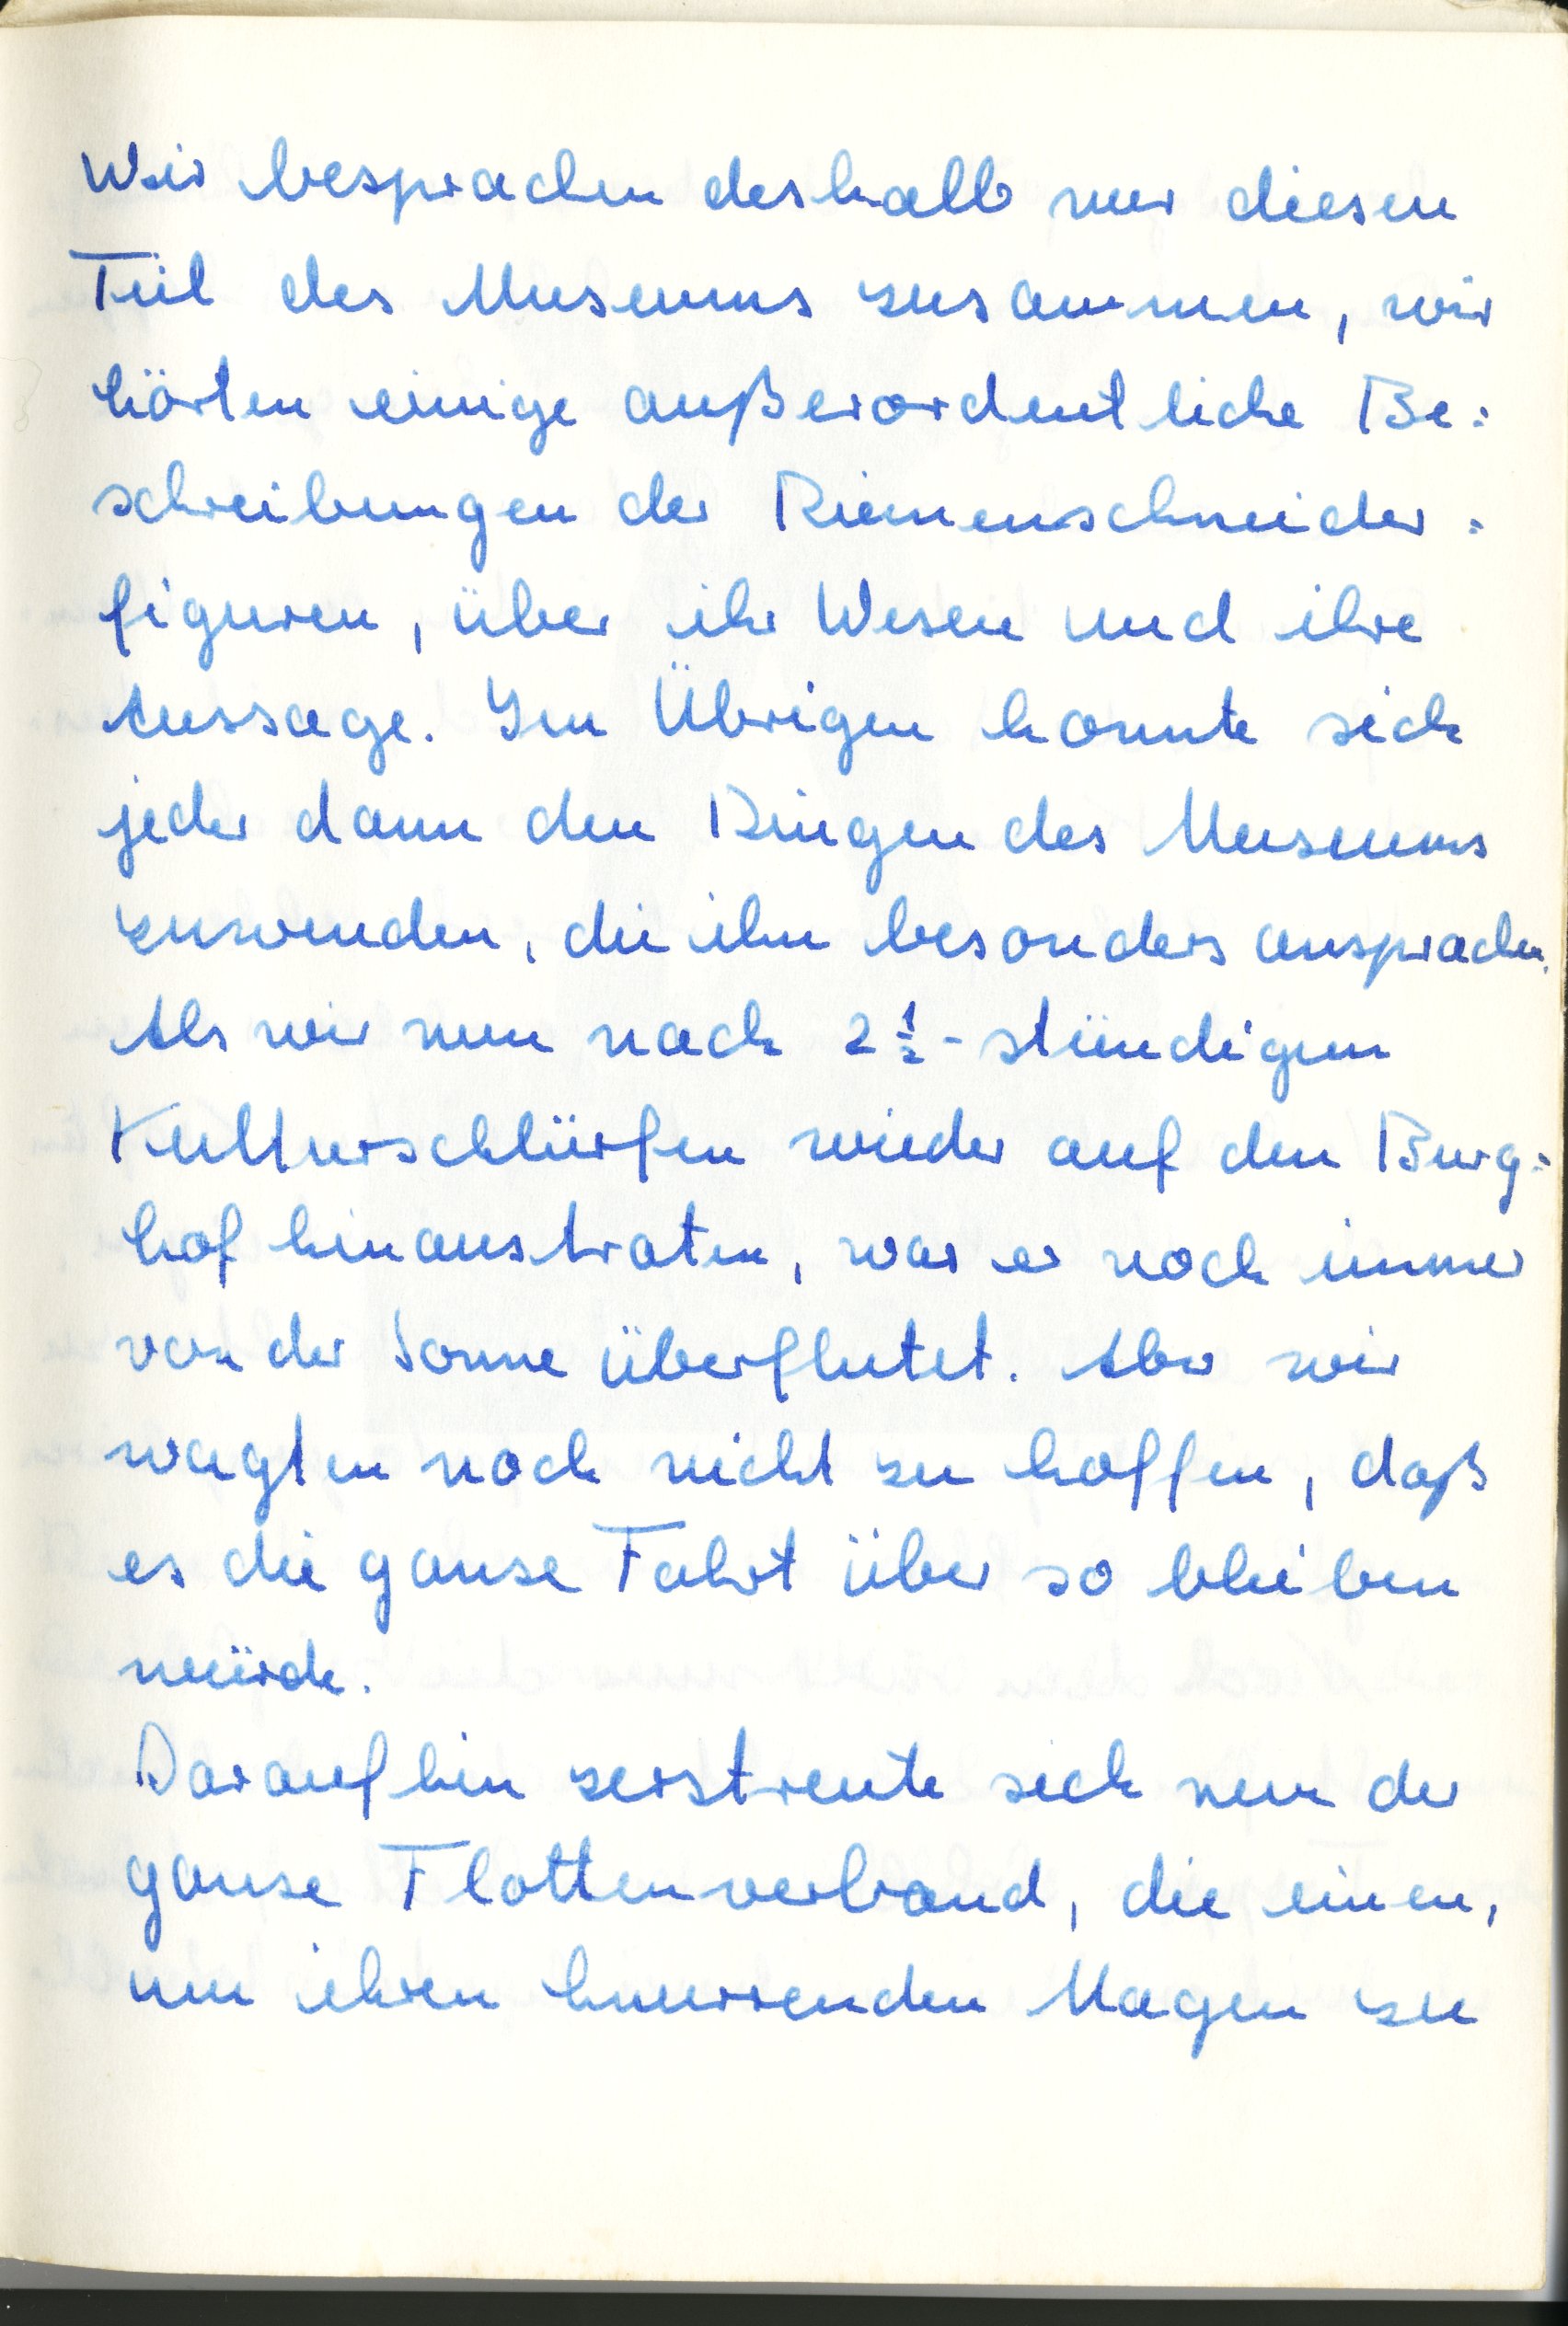 Wir besprachen deshalb nur diesen
Teil des Museums zusammen, wir
hörten einige außerordentliche Be:
schreibungen der Riemenschneider:
figuren, über ihr Wesen und ihre
Aussage. Im Übrigen konnte sich
jeder dann den Dingen des Museums
zuwenden, die ihn besonders ansprachen.
Als wir nun nach 2 1/2-stündigem
Kulturschlürfen wieder auf den Burg:
hof hinaustraten, war er noch immer
von der Sonne überflutet. Aber wir
wagten noch nicht zu hoffen, daß
es die ganze Fahrt über so bleiben
würde.
Daraufhin zerstreute sich nun der
ganze Flottenverband, die einen,
um ihren knurrenden Magen zu